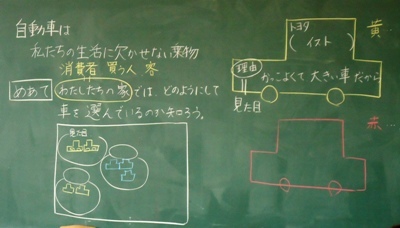 自動車は
私たちの生活に欠かせない乗物
消費者 買う人 客
めあて わたしたちの家では、どのようにして
車を選んでいるのか知ろう。
見た目
トヨタ
(イスト)
理由 かっこよくて大きい車だから
見た目
黄…
赤…